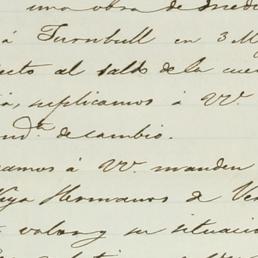 una obra de medi
á Turnbull en 3 M
ecto al saldo de la cue
a, suplicamos á VV.
nd.ta de cambio.
camos á VV. manden
Vega Hermanos de Ver
valor y su situacio